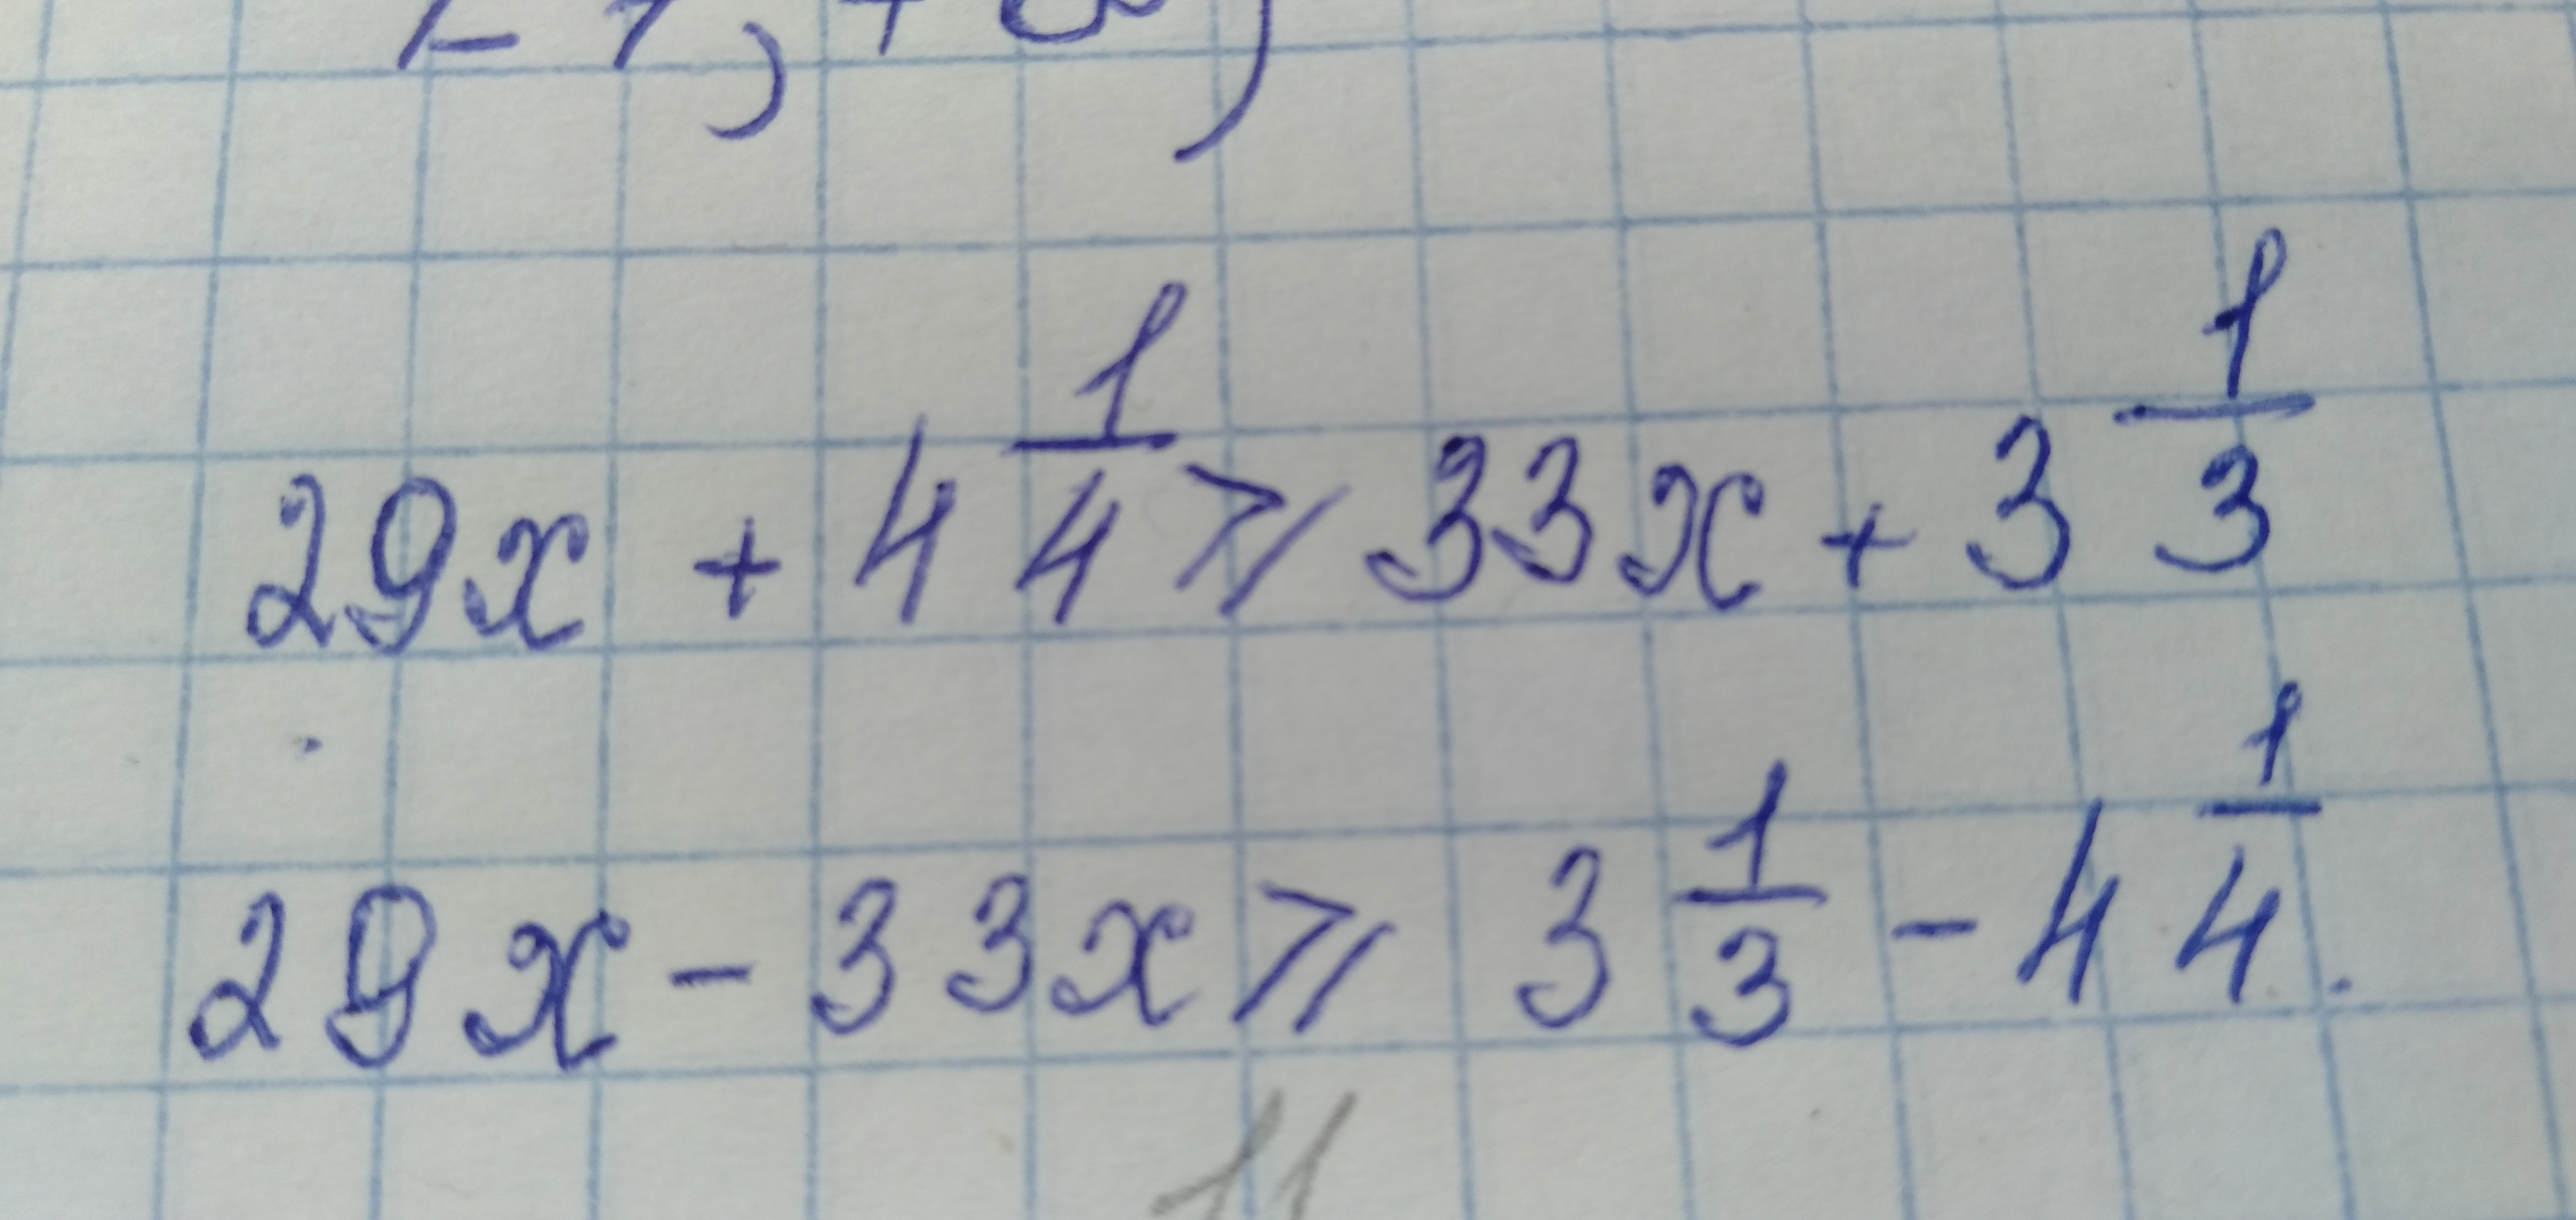 29x + 4 1/4 ⩾ 33x + 3 1/3
29x - 33x ⩾ 3 1/3 - 4 1/4.